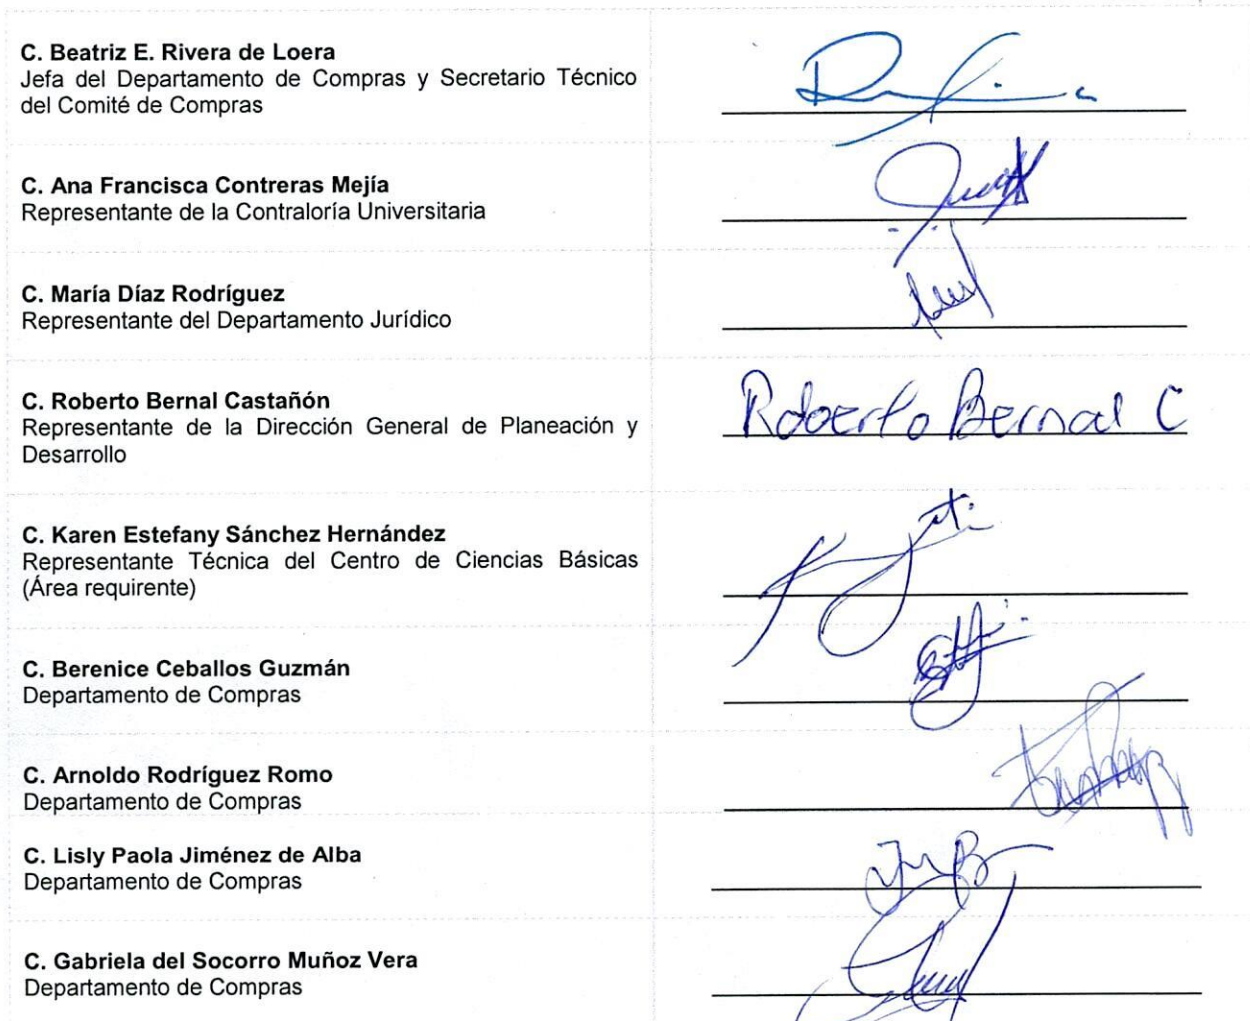 C. Beatriz E. Rivera de Loera
Jefa del Departamento de Compras y Secretario Técnico
del Comité de Compras
C. Ana Francisca Contreras Mejía
Representante de la Contraloría Universitaria
C. María Díaz Rodríguez
Representante del Departamento Jurídico
C. Roberto Bernal Castañón
Representante de la Dirección General de Planeación y
Desarrollo
Roberto Bernal C
C. Karen Estefany Sánchez Hernández
Representante Técnica del Centro de Ciencias Básicas
(Área requirente)
C. Berenice Ceballos Guzmán
Departamento de Compras
C. Arnoldo Rodríguez Romo
Departamento de Compras
C. Lisly Paola Jiménez de Alba
Departamento de Compras
C. Gabriela del Socorro Muñoz Vera
Departamento de Compras